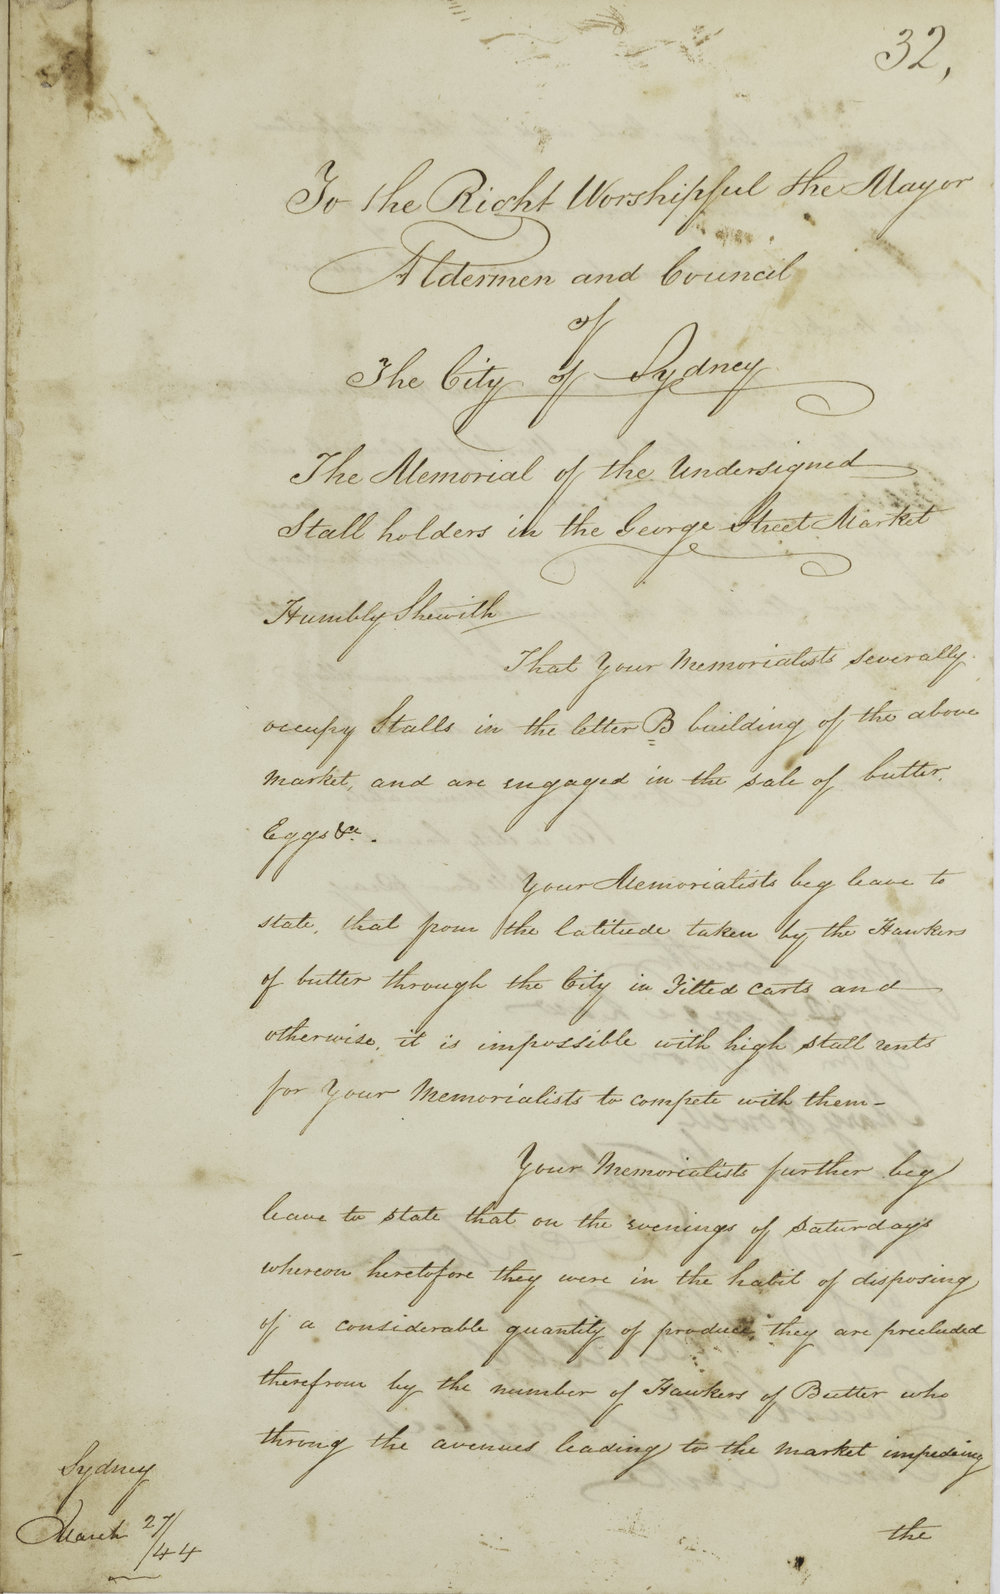 32,
To the Right Worshipful the Mayor
Aldermen and Council
of
The City of Sydney
The Memorial of the Undersigned
Stall holders in the George Street Market
Humbly Shewith
That Your Memorialists severally
occupy Stalls in the letter B building of the above
market, and are engaged in the sale of butter,
Eggs &c.
Your Memorialists beg leave to
state, that from the latitude taken by the Hawkers
of butter through the City in Tilted carts and
otherwise, it is impossible with high stall rents
for Your Memorialists to compete with them -
Your Memorialists further beg
leave to state that on the evenings of Saturdays
whereon heretofore they were in the habit of disposing
of a considerable quantity of produce, they are precluded
therefrom by the number of Hawkers of Butter who
throng the avenues leading to the market impeding
the
Sydney
March 27/44